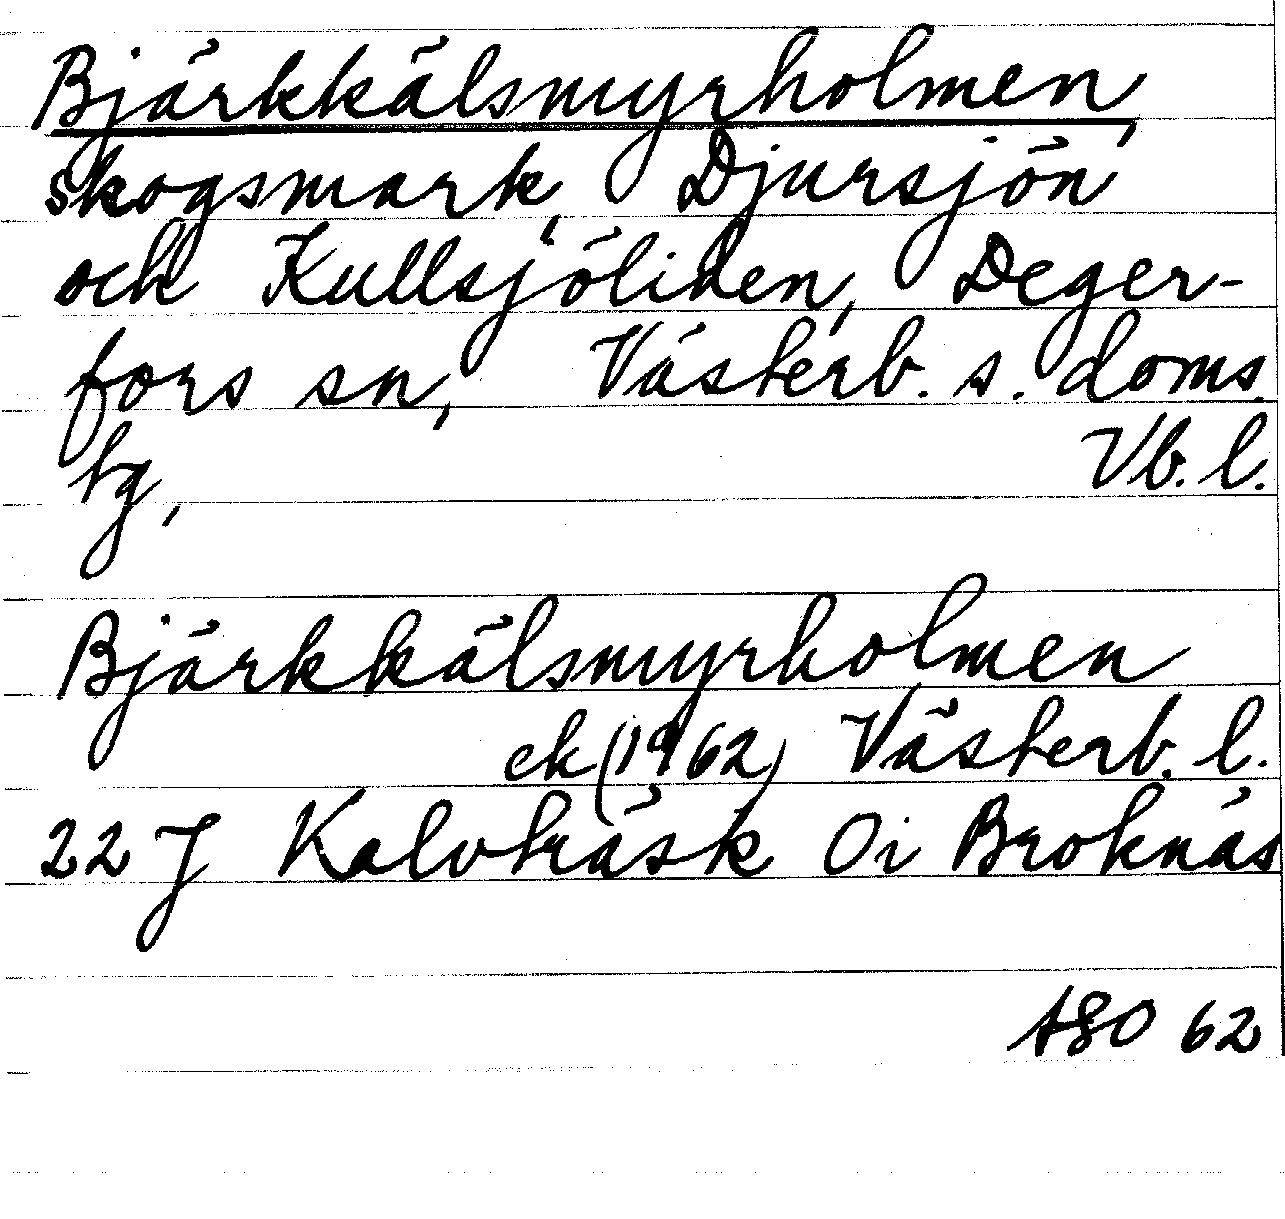 Bjärkkälsmyrholmen,
skogsmark, Djursjön
och Kullsjöliden, Deger-
fors sn, Västerb. s. doms.
tg, Vb. l.
Bjärkkälsmyrholmen
ek (1962) Västerb. l.
22 J Kalvträsk Oi Broknäs
ASO 62